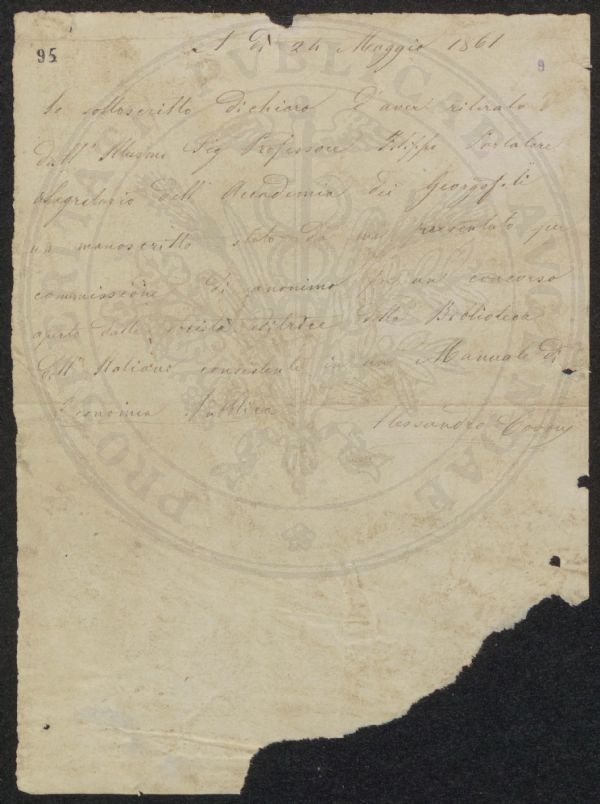 95
A dì 24 Maggio 1861
9
Io sottoscritto dichiaro d'aver ritirato
dall' Illusmo Sig Professore Filippo Parlatore
Segretario dell' Accademia dei Georgofili
un manoscritto stato da me presentato per
commissione di anonimo un concorso
aperto dalla società editrice della Biblioteca
dell' Italiano consistente in un Manuale di
Economia Pubblica
Alessandro
PROSPERITATI PUBLICAE AUGENDAE